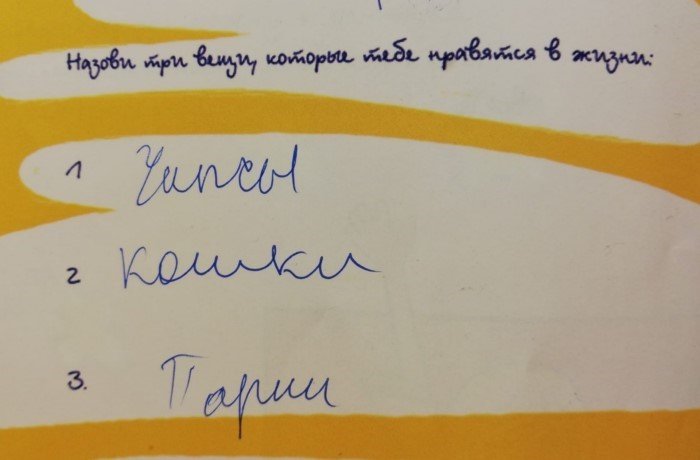 Назови три вещи, которые тебе нравятся в жизни:
1 Чипсы
2 Кошки
3. Парни